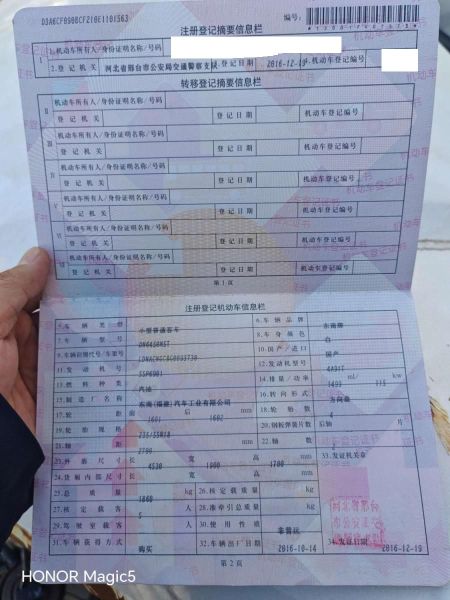 注册登记摘要信息栏
编号:
1.机动车所有人/身份证明名称/号码
2.登记机关 河北省邢台市公安局交通警察支队 登记日期 2016-12-19 机动车登记编号
转移登记摘要信息栏
机动车所有人/身份证明名称/号码
登记机关 登记日期 机动车登记编号
机动车所有人/身份证明名称/号码
登记机关 登记日期 机动车登记编号
机动车所有人/身份证明名称/号码
登记机关 登记日期 机动车登记编号
机动车所有人/身份证明名称/号码
登记机关 登记日期 机动车登记编号
机动车所有人/身份证明名称/号码
登记机关 登记日期 机动车登记编号
机动车所有人/身份证明名称/号码
登记机关 登记日期 机动车登记编号
第1页
注册登记机动车信息栏
5.车辆类型 小型普通客车 6.车辆品牌 东南牌
7.车辆型号 8.车身颜色 白
9.车辆识别代号/车架号 10.国产/进口 国产
11.发动机号 12.发动机型号 4A91T
13.燃料种类 汽油 14.排量/功率 1499 ml/ kw
15.制造厂名称 东南(福建)汽车工业有限公司 16.转向形式 方向盘
17.轮距 前 1601 后 1602 mm 18.轮胎数 4
19.轮胎规格 235/55R18 20.钢板弹簧片数 后轴 片
21.轴距 2700 mm 22.轴数
23.外廓尺寸 长 4530 宽 1900 高 1700 mm 33.发证机关章
24.货厢内部尺寸 长 宽 高 mm
25.总质量 1860 kg 26.核定载质量 kg
27.核定载客 5 人 28.准牵引总质量 kg
29.驾驶室载客 人 30.使用性质 非营运
31.车辆获得方式 购买 32.车辆出厂日期 2016-10-14 34.发证日期 2016-12-19
第2页
HONOR Magic5